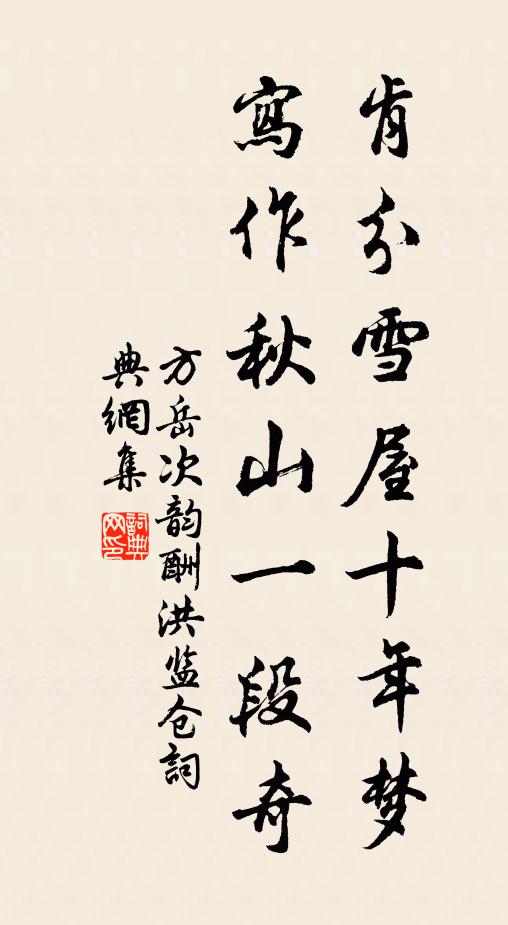 肯分雪屋十年梦
寫作秋山一段奇
方岳次韵酬洪监仓詞
典網集
詞典
网印